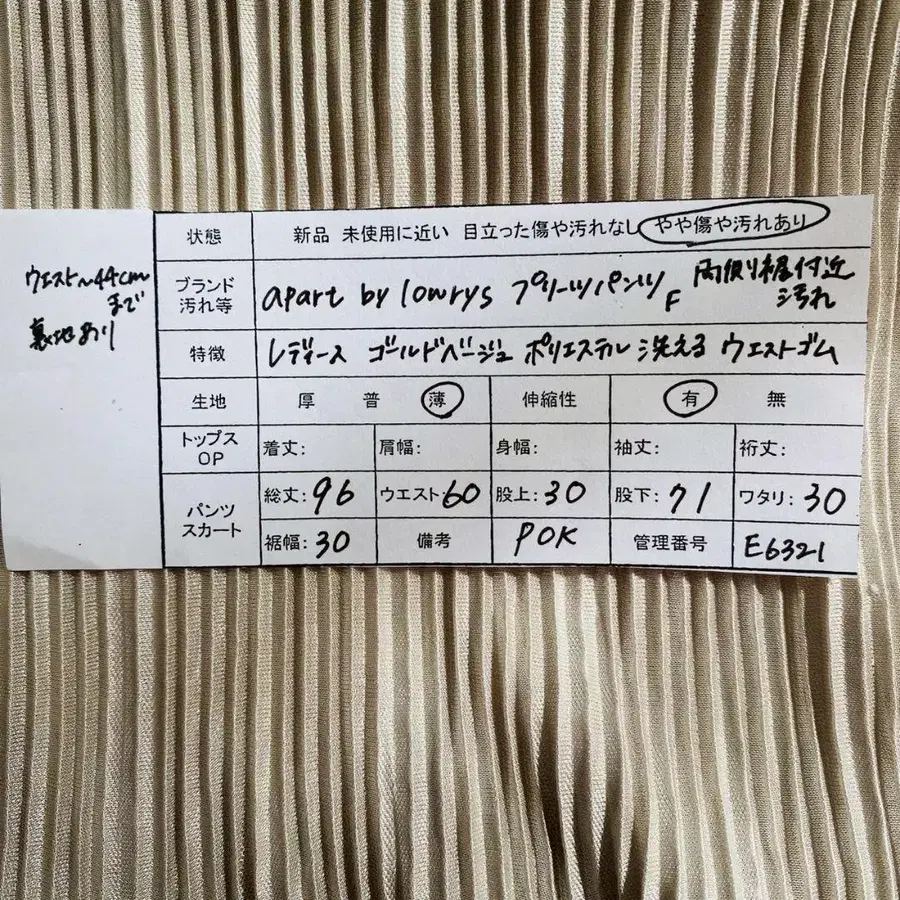 ウエスト~44cm
まで
裏地あり
状態 新品 未使用に近い 目立った傷や汚れなし やや傷や汚れあり
ブランド
汚れ等
apart by lowrys プリーツパンツ F 両側裾付近
汚れ
特徴 レディース ゴールドベージュ ポリエステル 洗える ウエストゴム
生地 厚 普 薄 伸縮性 有 無
トップス
OP
着丈: 肩幅: 身幅: 袖丈: 裄丈:
パンツ
スカート
総丈:96 ウエスト60 股上:30 股下:71 ワタリ:30
裾幅:30 備考 POK 管理番号 E6321